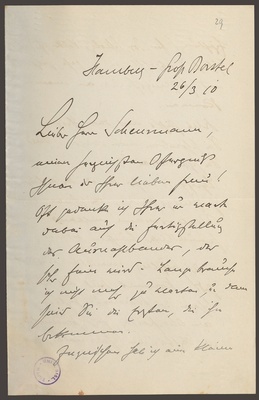 29
Hamburg – Groß Borstel
26/3 10
Lieber Herr Scheurmann,
meinen herzlichsten Ostergruß
Ihnen der Ihrer lieben Frau!
Oft gedenke ich Ihrer u.
dabei auf die Fertigstellung
der Auswahlbandes, der
sehr fein wird. Lange brauche
ich nicht mehr zu warten u. dann
sind Sie die Ersten, die ihn
bekommen.
Inzwischen hab ich ein kleines